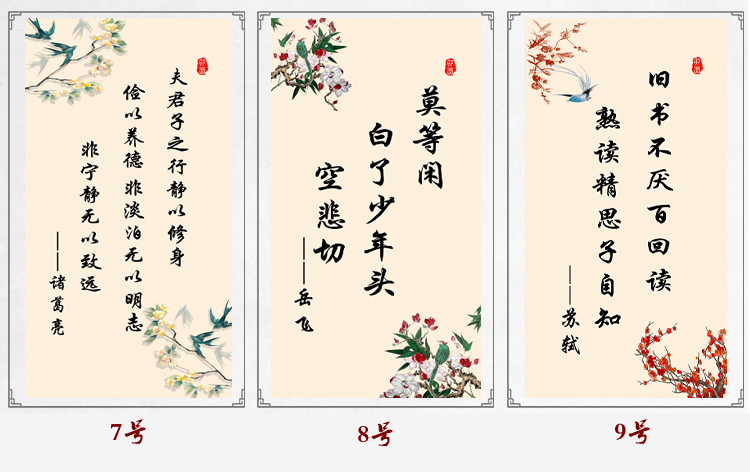 夫君子之行静以修身
俭以养德 非淡泊无以明志
非宁静无以致远
——诸葛亮
7号
莫等闲
白了少年头
空悲切
——岳飞
8号
旧书不厌百回读
熟读精思子自知
——苏轼
9号